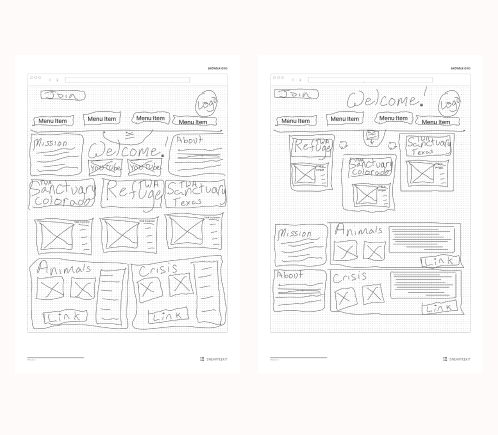 Join
Logo
Menu Item
Menu Item
Menu Item
Menu Item
Mission
Welcome!
About
YouTube
YouTube
TWA
Sanctuary
Colorado
TWA
Refuge
TWA
Sanctuary
Texas
Animals
Link
Crisis
Link
Join
Welcome!
Logo
Menu Item
Menu Item
Menu Item
Menu Item
TWA
Refuge
TWA
Sanctuary
Colorado
TWA
Sanctuary
Texas
Mission
Animals
Link
About
Crisis
Link